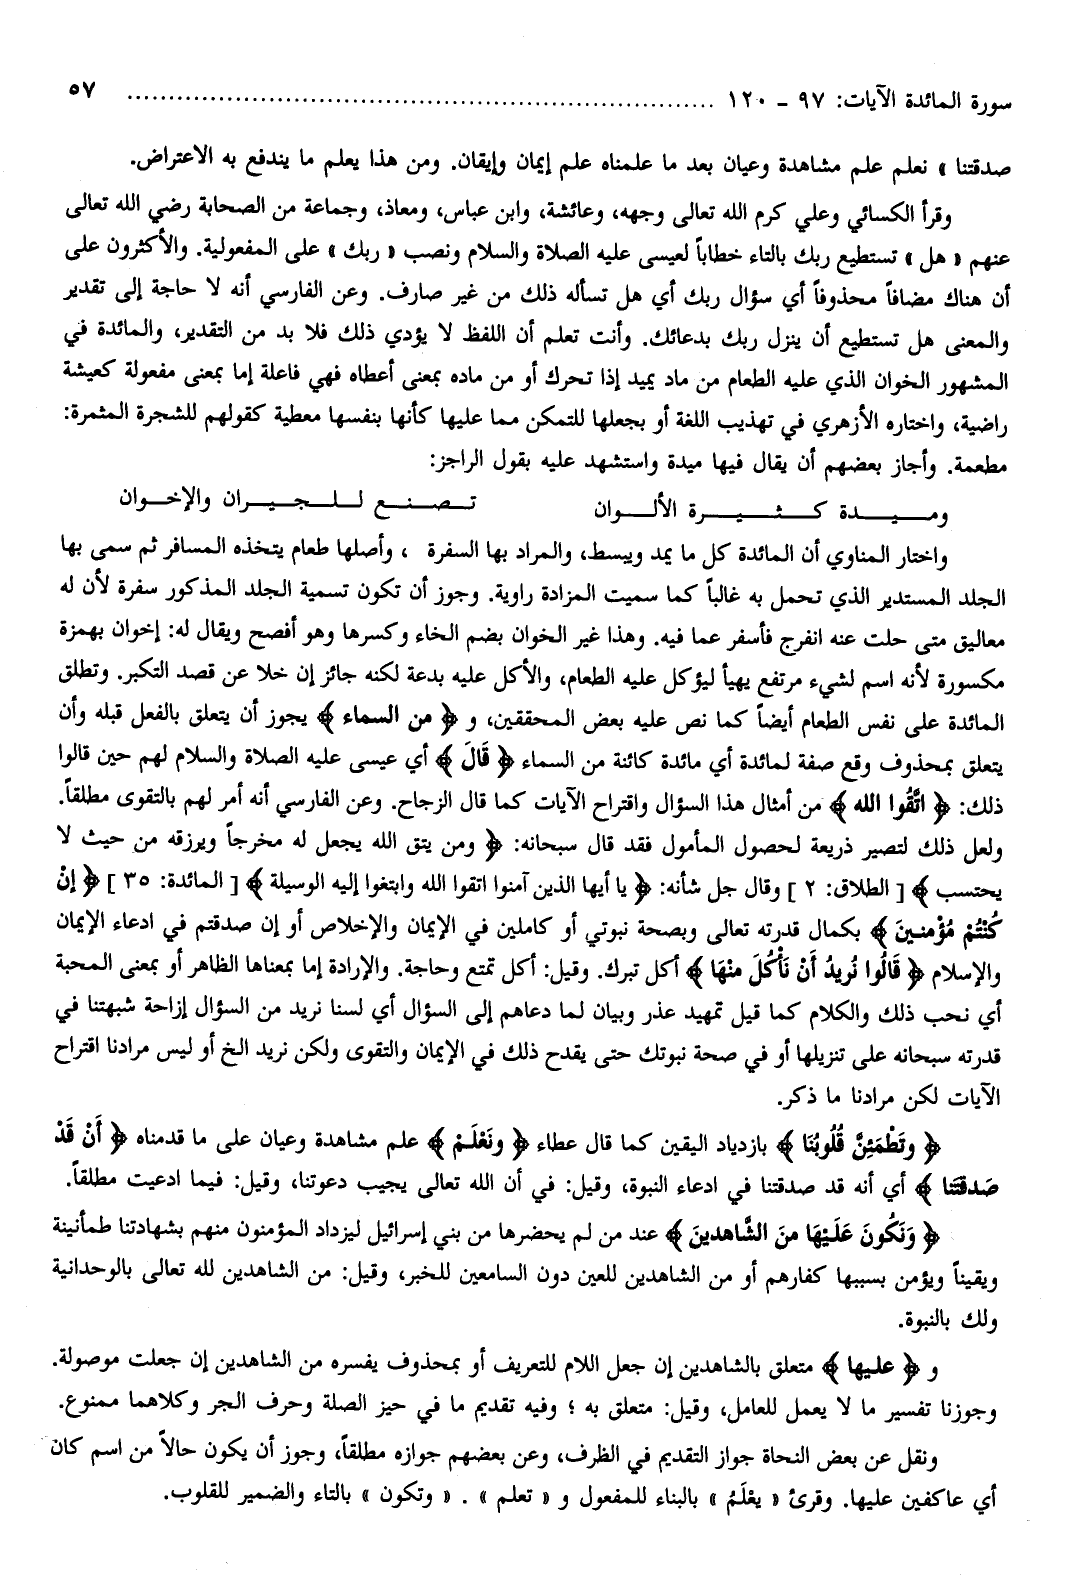 سورة المائدة الآيات: ٩٧ - ١٢٠ ........................................ ٥٧
صدقتنا » نعلم علم مشاهدة وعيان بعد ما علمناه علم إيمان وإيقان. ومن هذا يعلم ما يندفع به الاعتراض.
وقرأ الكسائي وعلي كرم الله تعالى وجهه، وعائشة، وابن عباس، ومعاذ، وجماعة من الصحابة رضي الله تعالى
عنهم « هل » تستطيع ربك بالتاء خطاباً لعيسى عليه الصلاة والسلام ونصب « ربك » على المفعولية. والأكثرون على
أن هناك مضافاً محذوفاً أي سؤال ربك أي هل تسأله ذلك من غير صارف. وعن الفارسي أنه لا حاجة إلى تقدير
والمعنى هل تستطيع أن ينزل ربك بدعائك. وأنت تعلم أن اللفظ لا يؤدي ذلك فلا بد من التقدير، والمائدة في
المشهور الخوان الذي عليه الطعام من ماد يميد إذا تحرك أو من ماده بمعنى أعطاه فهي فاعلة إما بمعنى مفعولة كعيشة
راضية، واختاره الأزهري في تهذيب اللغة أو بجعلها للتمكن مما عليها كأنها بنفسها معطية كقولهم للشجرة المثمرة:
مطعمة. وأجاز بعضهم أن يقال فيها ميدة واستشهد عليه بقول الراجز:
وميدة كثيرة الألوان تصنع للجيران والإخوان
واختار المناوي أن المائدة كل ما يمد ويبسط، والمراد بها السفرة ، وأصلها طعام يتخذه المسافر ثم سمي بها
الجلد المستدير الذي تحمل به غالباً كما سميت المزادة راوية. وجوز أن تكون تسمية الجلد المذكور سفرة لأن له
معاليق متى حلت عنه انفرج فأسفر عما فيه. وهذا غير الخوان بضم الخاء وكسرها وهو أفصح ويقال له: إخوان بهمزة
مكسورة لأنه اسم لشيء مرتفع يهيأ ليؤكل عليه الطعام، والأكل عليه بدعة لكنه جائز إن خلا عن قصد التكبر. وتطلق
المائدة على نفس الطعام أيضاً كما نص عليه بعض المحققين، و ﴿ من السماء ﴾ يجوز أن يتعلق بالفعل قبله وأن
يتعلق بمحذوف وقع صفة لمائدة أي مائدة كائنة من السماء ﴿ قَالَ ﴾ أي عيسى عليه الصلاة والسلام لهم حين قالوا
ذلك: ﴿ اتَّقُوا الله ﴾ من أمثال هذا السؤال واقتراح الآيات كما قال الزجاج. وعن الفارسي أنه أمر لهم بالتقوى مطلقاً.
ولعل ذلك لتصير ذريعة لحصول المأمول فقد قال سبحانه: ﴿ ومن يتق الله يجعل له مخرجاً ويرزقه من حيث لا
يحتسب ﴾ [ الطلاق: ٢ ] وقال جل شأنه: ﴿ يا أيها الذين آمنوا اتقوا الله وابتغوا إليه الوسيلة ﴾ [ المائدة: ٣٥ ] ﴿ إنْ
كُنْتُمْ مُؤْمنينَ ﴾ بكمال قدرته تعالى وبصحة نبوتي أو كاملين في الإيمان والإخلاص أو إن صدقتم في ادعاء الإيمان
والإسلام ﴿ قَالُوا نُريدُ أَنْ نَأْكُلَ منْهَا ﴾ أكل تبرك. وقيل: أكل تمتع وحاجة. والإرادة إما بمعناها الظاهر أو بمعنى المحبة
أي نحب ذلك والكلام كما قيل تمهيد عذر وبيان لما دعاهم إلى السؤال أي لسنا نريد من السؤال إزاحة شبهتنا في
قدرته سبحانه على تنزيلها أو في صحة نبوتك حتى يقدح ذلك في الإيمان والتقوى ولكن نريد الخ أو ليس مرادنا اقتراح
الآيات لكن مرادنا ما ذكر.
﴿ وتَطْمَئنَّ قُلُوبُنَا ﴾ بازدياد اليقين كما قال عطاء ﴿ ونَعْلَمْ ﴾ علم مشاهدة وعيان على ما قدمناه ﴿ أَنْ قَدْ
صَدقتَنا ﴾ أي أنه قد صدقتنا في ادعاء النبوة، وقيل: في أن الله تعالى يجيب دعوتنا، وقيل: فيما ادعيت مطلقاً.
﴿ وَنَكُونَ عَلَيْهَا منَ الشَّاهدينَ ﴾ عند من لم يحضرها من بني إسرائيل ليزداد المؤمنون منهم بشهادتنا طمأنينة
ويقيناً ويؤمن بسببها كفارهم أو من الشاهدين للعين دون السامعين للخبر، وقيل: من الشاهدين لله تعالى بالوحدانية
ولك بالنبوة.
و ﴿ عليها ﴾ متعلق بالشاهدين إن جعل اللام للتعريف أو بمحذوف يفسره من الشاهدين إن جعلت موصولة.
وجوزنا تفسير ما لا يعمل للعامل، وقيل: متعلق به ؛ وفيه تقديم ما في حيز الصلة وحرف الجر وكلاهما ممنوع.
ونقل عن بعض النحاة جواز التقديم في الظرف، وعن بعضهم جوازه مطلقاً، وجوز أن يكون حالاً من اسم كان
أي عاكفين عليها. وقرئ « يعْلَمُ » بالبناء للمفعول و « تعلم » . « وتكون » بالتاء والضمير للقلوب.